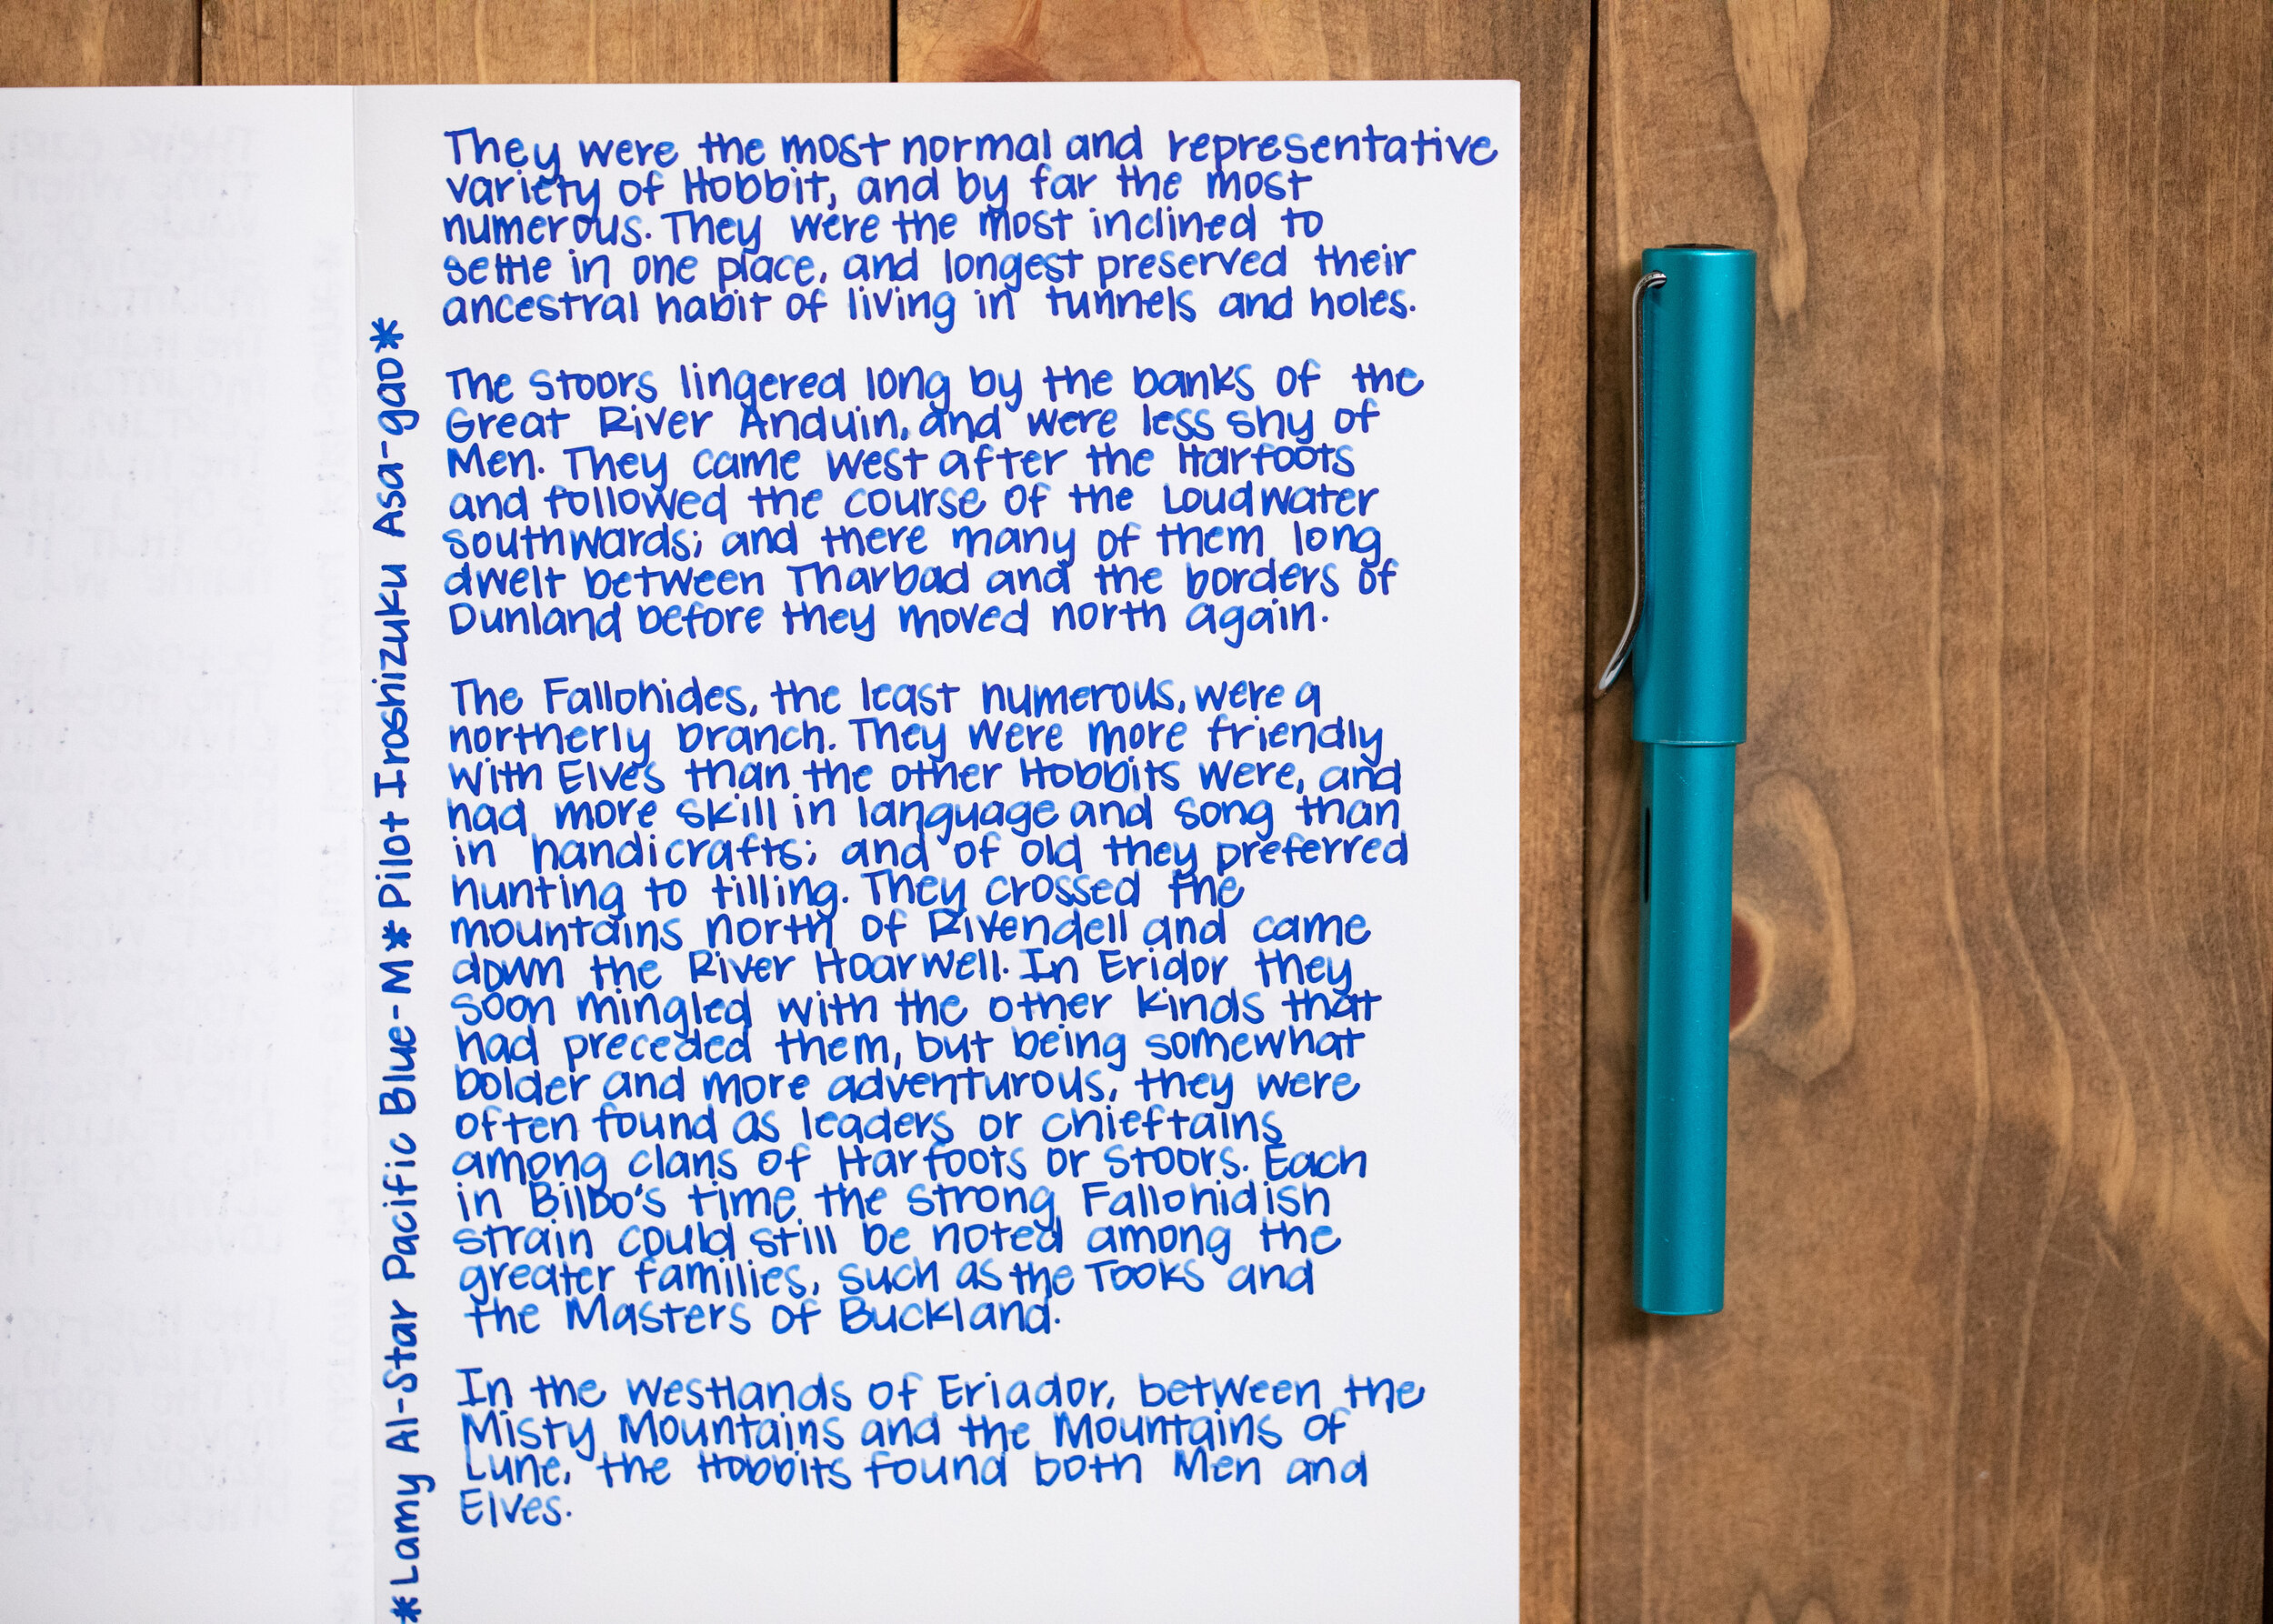 They were the most normal and representative
variety of Hobbit, and by far the most
numerous. They were the most inclined to
settle in one place, and longest preserved their
ancestral habit of living in tunnels and holes.
The Stoors lingered long by the banks of the
Great River Anduin, and were less shy of
Men. They came west after the Harfoots
and followed the course of the Loudwater
southwards; and there many of them long
dwelt between Tharbad and the borders of
Dunland before they moved north again.
The Fallohides, the least numerous, were a
northerly branch. They were more friendly
with Elves than the other Hobbits were, and
had more skill in language and song than
in handicrafts; and of old they preferred
hunting to tilling. They crossed the
mountains north of Rivendell and came
down the River Hoarwell. In Eridor they
soon mingled with the other kinds that
had preceded them, but being somewhat
bolder and more adventurous, they were
often found as leaders or chieftains
among clans of Harfoots or Stoors. Each
in Bilbo's time the strong Fallohidish
strain could still be noted among the
greater families, such as the Tooks and
the Masters of Buckland.
In the Westlands of Eriador, between the
Misty Mountains and the Mountains of
Lune, the Hobbits found both Men and
Elves.
*Lamy Al-Star Pacific Blue-M*Pilot Iroshizuku Asa-gao*